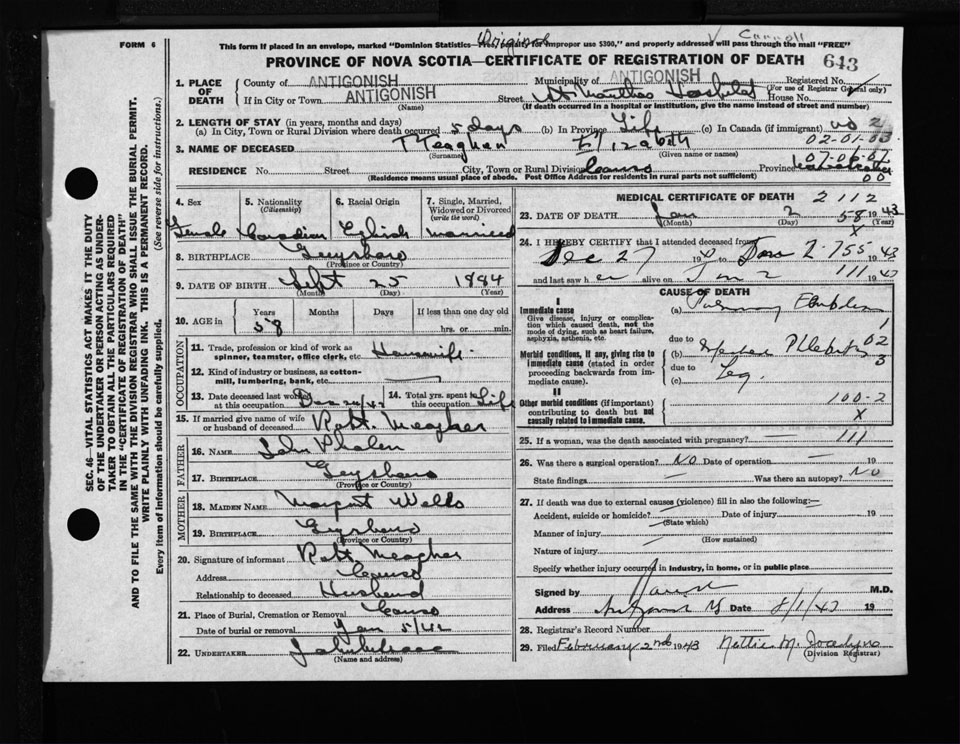 FORM 6
This form if placed in an envelope, marked "Dominion Statistics— improper use $300," and properly addressed will pass through the mail "FREE"
Original
Carroll
PROVINCE OF NOVA SCOTIA—CERTIFICATE OF REGISTRATION OF DEATH 643
1. PLACE OF DEATH
County of ANTIGONISH Municipality of ANTIGONISH Registered No.
(For use of Registrar General only)
If in City or Town ANTIGONISH Street St Marthas Hospital House No.
(Name) (If death occurred in a hospital or institution, give the name instead of street and number)
2. LENGTH OF STAY (in years, months and days)
(a) In City, Town or Rural Division where death occurred 5 days (b) In Province Life (c) In Canada (if immigrant) no 2
02-01-03
3. NAME OF DECEASED Meaghan Elizabeth
(Surname) (Given name or names)
07-06-07
RESIDENCE No. Street City, Town or Rural Division Canso Province
(Residence means usual place of abode. Post Office Address for residents in rural parts not sufficient) 00
4. Sex 5. Nationality (Citizenship) 6. Racial Origin 7. Single, Married, Widowed or Divorced (write the word)
Female Canadian English married
8. BIRTHPLACE Guysboro
(Province or Country)
9. DATE OF BIRTH Sept 25 1884
(Month) (Day) (Year)
10. AGE in Years Months Days If less than one day old
58 hrs. or min.
OCCUPATION
11. Trade, profession or kind of work as spinner, teamster, office clerk, etc. Housewife
12. Kind of industry or business, as cotton-mill, lumbering, bank, etc.
13. Date deceased last worked at this occupation Dec 42 14. Total yrs. spent to this occupation Life
15. If married give name of wife or husband of deceased Robt. Meagher
FATHER
16. NAME John Phalen
17. BIRTHPLACE Guysboro
(Province or Country)
MOTHER
18. MAIDEN NAME Margaret Wells
19. BIRTHPLACE Guysboro
(Province or Country)
20. Signature of informant Robt Meagher
Address Canso
Relationship to deceased Husband
21. Place of Burial, Cremation or Removal Canso
Date of burial or removal Jan 5/42
22. UNDERTAKER
(Name and address)
MEDICAL CERTIFICATE OF DEATH 2 112
23. DATE OF DEATH Jan 2 58 1943
(Month) (Day) (Year)
X
24. I HEREBY CERTIFY that I attended deceased from
Dec 27 19 to Jan 2 755 43
and last saw her alive on Jan 2 111 1943
CAUSE OF DEATH
I
Immediate cause
Give disease, injury or complication which caused death, not the mode of dying, such as heart failure, asphyxia, asthenia, etc.
(a) Pulmonary Embolism
1
due to 02
Morbid conditions, if any, giving rise to immediate cause (stated in order proceeding backwards from immediate cause).
(b) Phlebitis 3
due to Leg.
(c)
II
Other morbid conditions (if important) contributing to death but not causally related to immediate cause.
100-2
X
25. If a woman, was the death associated with pregnancy? — 111
26. Was there a surgical operation? NO Date of operation — 19
State findings — Was there an autopsy? NO
27. If death was due to external causes (violence) fill in also the following:—
Accident, suicide or homicide? Date of injury 19
(State which)
Manner of injury
(How sustained)
Nature of injury
Specify whether injury occurred in industry, in home, or in public place
Signed by M.D.
Address Date 8/1/43 19
28. Registrar's Record Number
29. Filed February 2nd 1943 Nettie M. Jocelyn
(Division Registrar)
SEC. 46—VITAL STATISTICS ACT MAKES IT THE DUTY
OF THE UNDERTAKER OR PERSON ACTING AS UNDERTAKER TO OBTAIN ALL THE PARTICULARS REQUIRED
IN THE "CERTIFICATE OF REGISTRATION OF DEATH"
AND TO FILE THE SAME WITH THE DIVISION REGISTRAR WHO SHALL ISSUE THE BURIAL PERMIT.
WRITE PLAINLY WITH UNFADING INK. THIS IS A PERMANENT RECORD.
Every item of information should be carefully supplied. (See reverse side for instructions.)